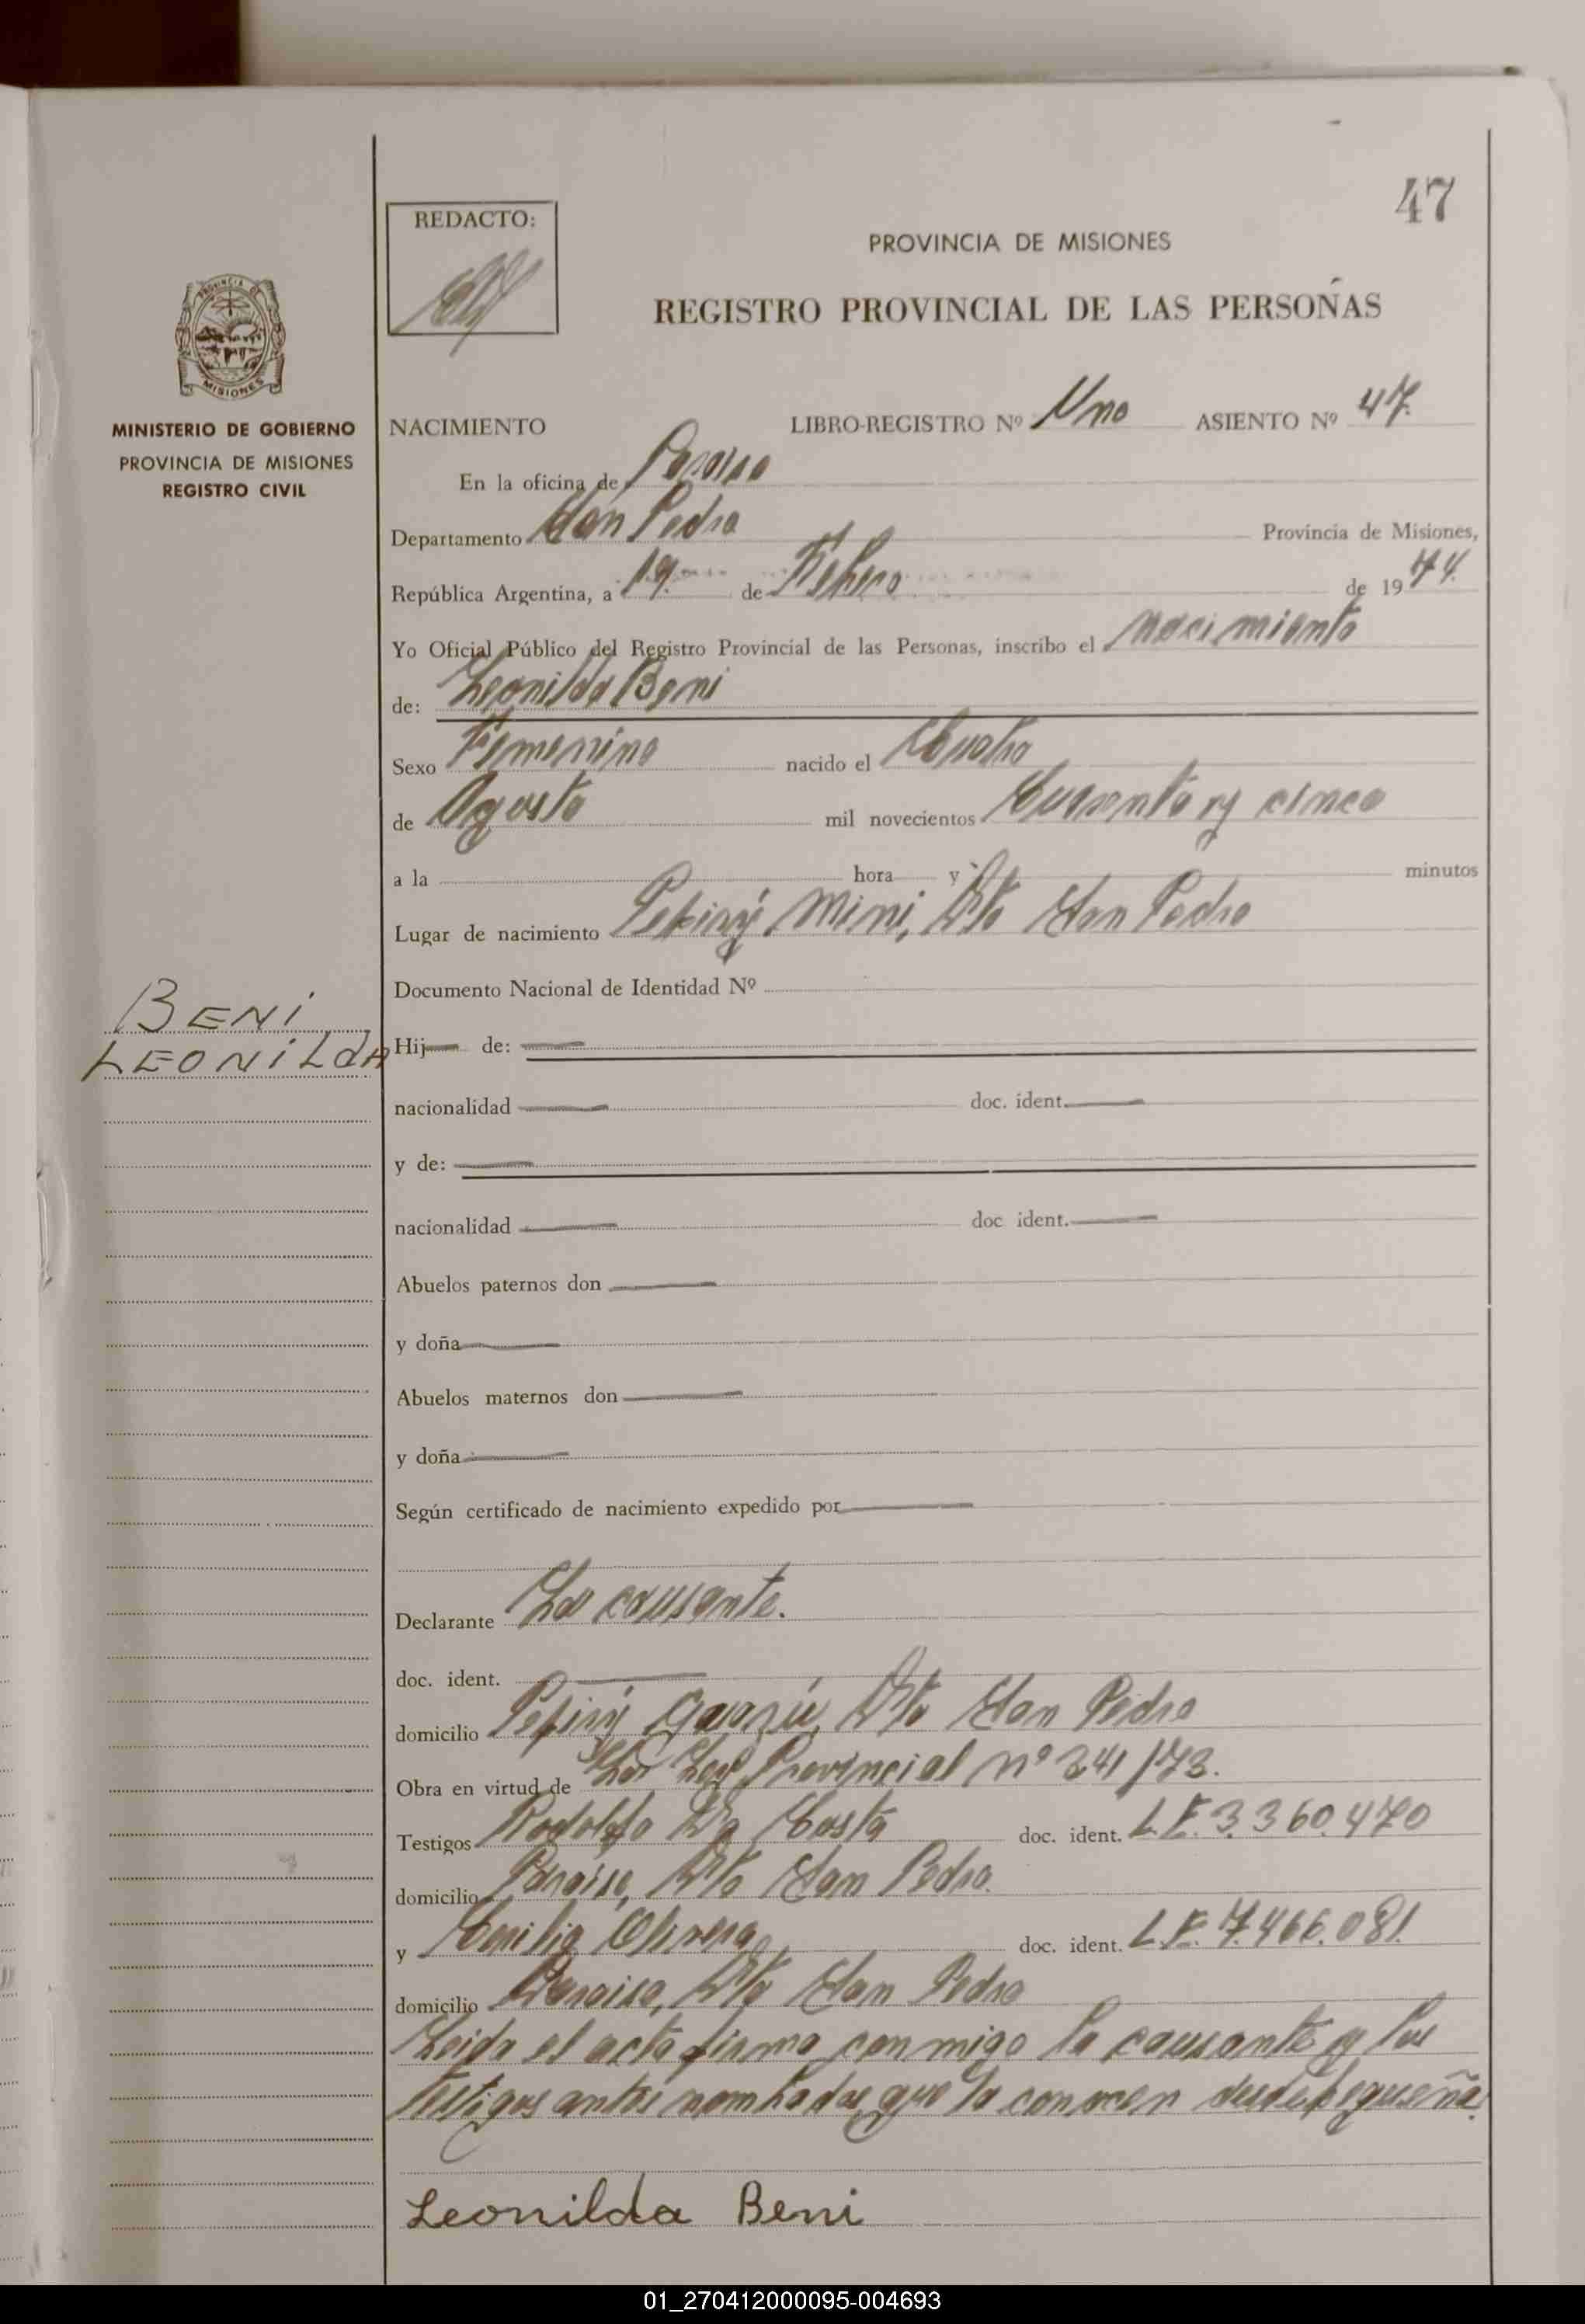 47
REDACTO:
PROVINCIA DE MISIONES
REGISTRO PROVINCIAL DE LAS PERSONAS
PROVINCIA DE
MISIONES
MINISTERIO DE GOBIERNO
PROVINCIA DE MISIONES
REGISTRO CIVIL
NACIMIENTO LIBRO-REGISTRO Nº Uno ASIENTO Nº 47.
En la oficina de Paraiso
Departamento San Pedro Provincia de Misiones,
República Argentina, a 19 de Febrero de 1974.
Yo Oficial Público del Registro Provincial de las Personas, inscribo el nacimiento
de: Leonilda Beni
Sexo Femenino nacido el Cuatro
de Agosto mil novecientos Cuarenta y cinco
a la hora y minutos
Lugar de nacimiento Pepirí Mini, Dto San Pedro
Documento Nacional de Identidad Nº
BENI
LEONILdA
Hij de:
nacionalidad doc. ident.
y de:
nacionalidad doc ident.
Abuelos paternos don
y doña
Abuelos maternos don
y doña
Según certificado de nacimiento expedido por
Declarante La causante.
doc. ident.
domicilio Pepirí Guazú, Dto San Pedro
Obra en virtud de Ley Provincial nº 241/73.
Testigos Rodolfo Da Costa doc. ident. L.E. 3.360.470
domicilio Paraiso, Dto San Pedro.
y Olivera doc. ident. L.E. 7.466.081.
domicilio Paraiso, Dto San Pedro
Leida el acta firma conmigo la causante y los
testigos antes nombrados que la conocen desde pequeña.
Leonilda Beni
01_270412000095-004693